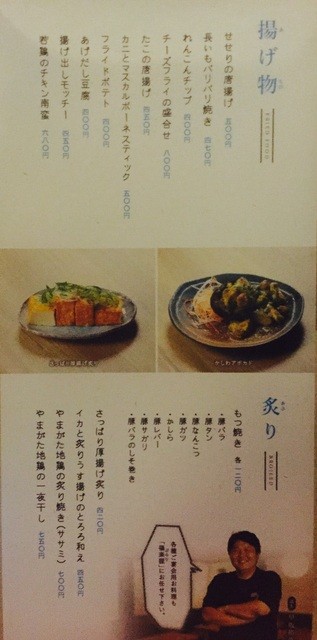 揚げ物
FRIED FOOD
せせりの唐揚げ 五〇〇円
長いもパリパリ焼き 四七〇円
れんこんチップ 四〇〇円
チーズフライの盛合せ 六〇〇円
たこの唐揚げ 四五〇円
カニとマスカルポーネスティック 五〇〇円
フライドポテト 四〇〇円
あげだし豆腐 四〇〇円
揚げ出しモッチー 四五〇円
若鶏のチキン南蛮 六八〇円
炙り
BROILED
もつ焼き 各一二〇円
・豚バラ
・豚タン
・豚なんこつ
・豚ガツ
・かしら
・豚レバー
・豚サガリ
・豚バラのしそ巻き
さっぱり厚揚げ炙り 四二〇円
イカと炙りうす揚げのとろろ和え 四五〇円
やまがた地鶏の炙り焼き(ササミ) 七〇〇円
やまがた地鶏の一夜干し 七五〇円
各種ご宴会用お料理も
にお任せ下さい。